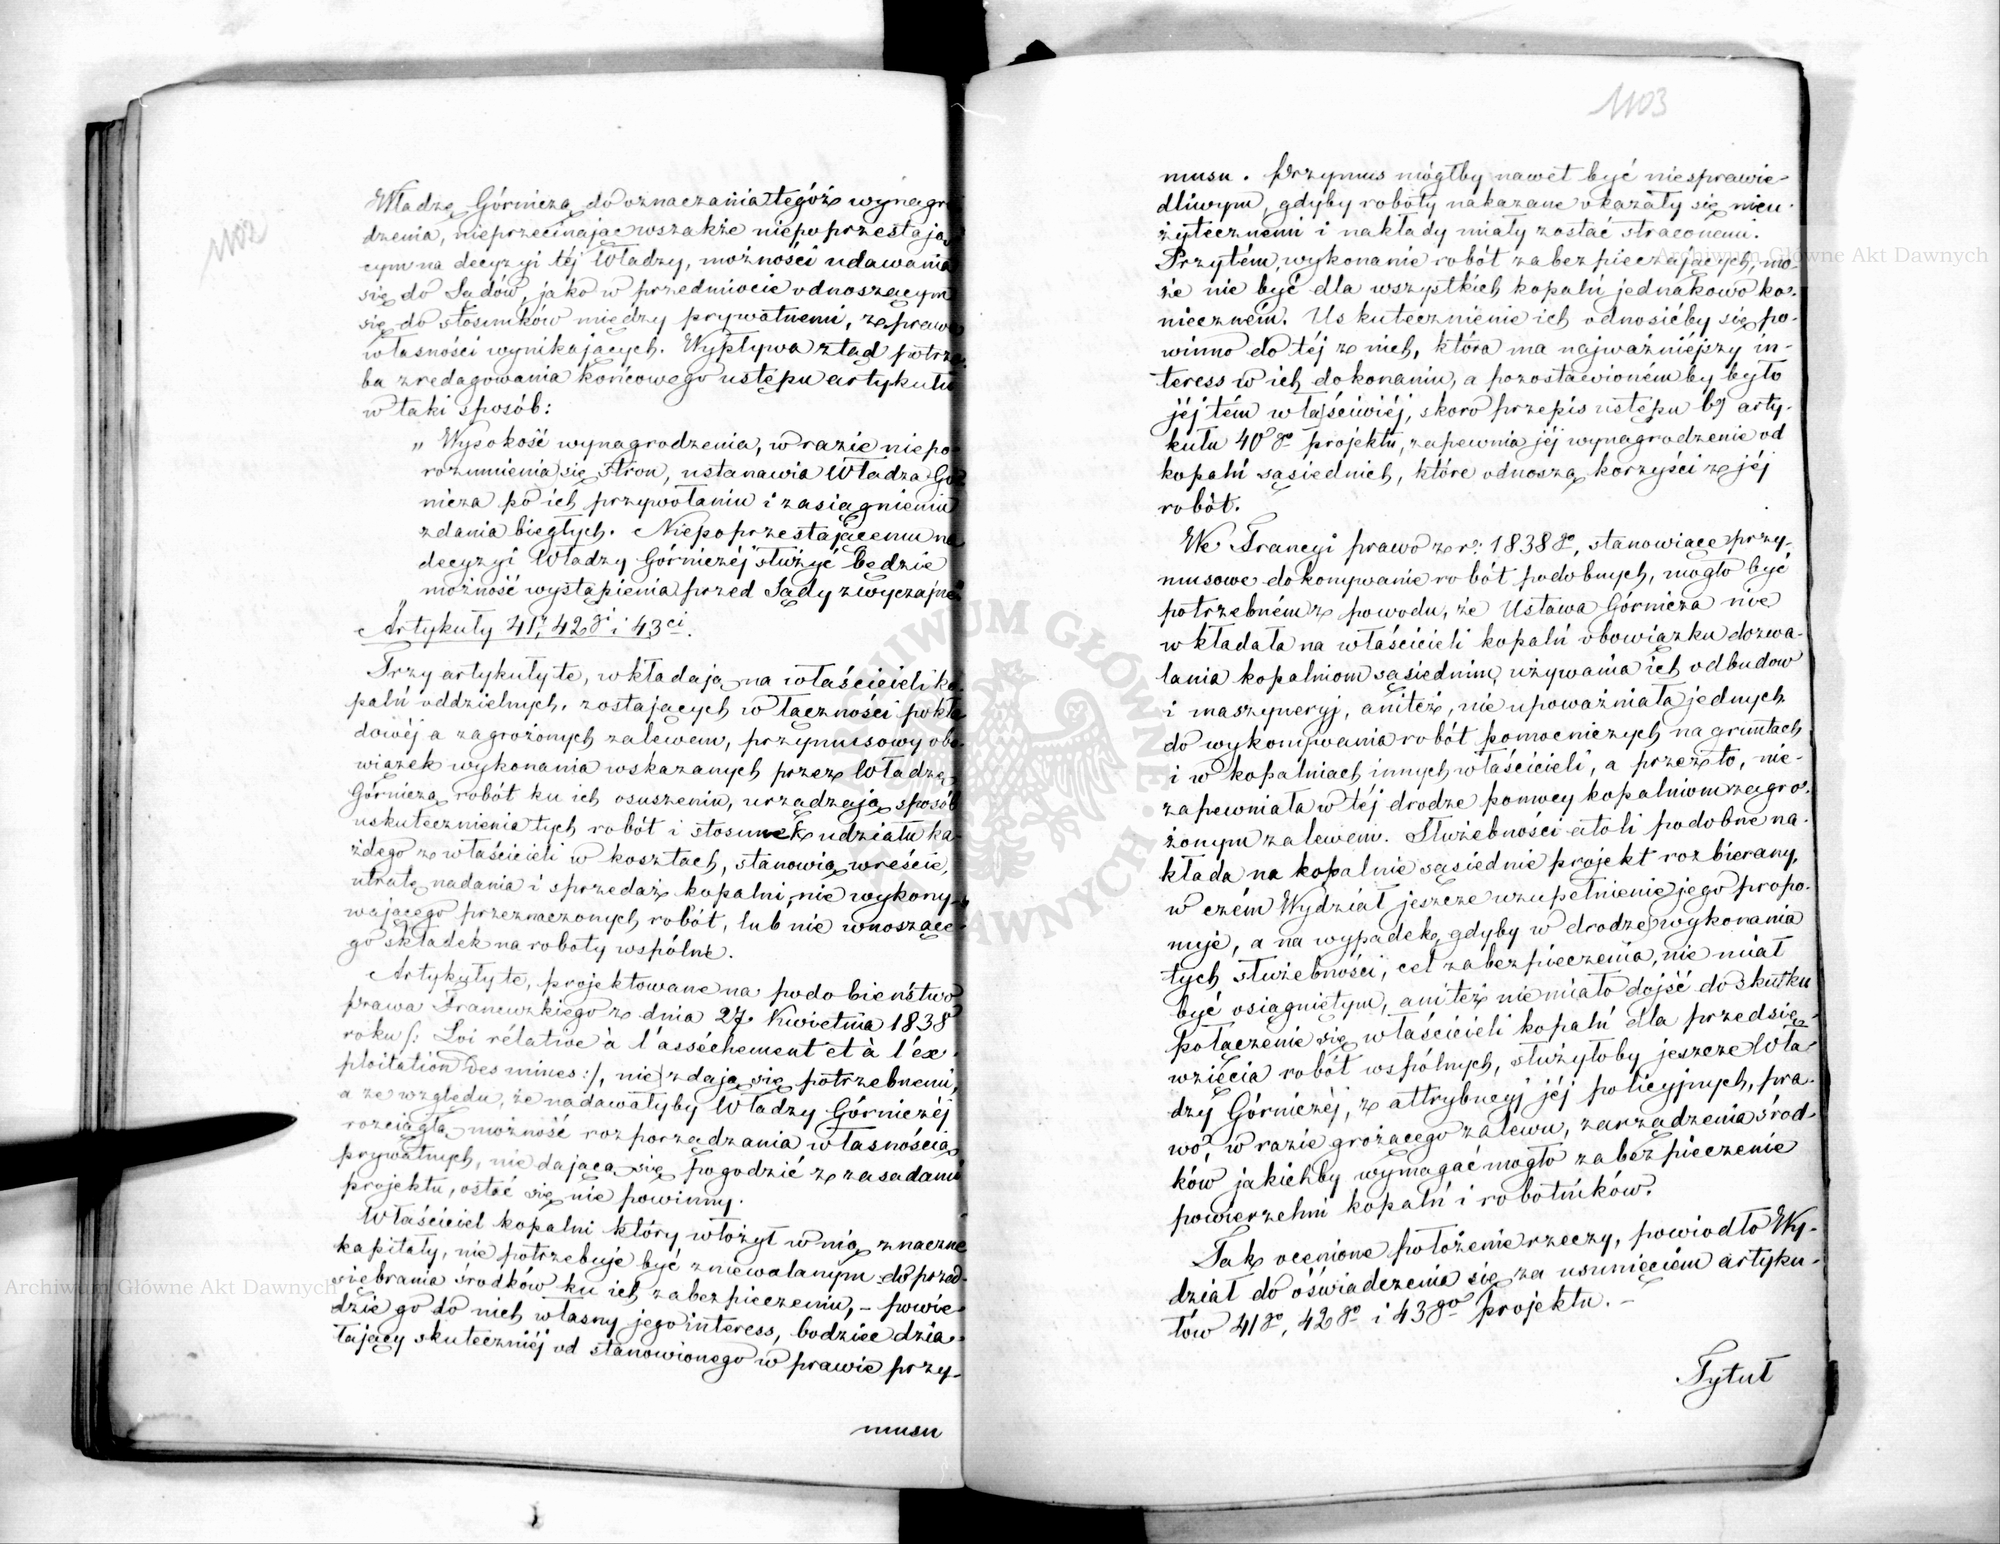 1102
Władzę Górniczą do oznaczania tegóż wynagro
dzenia, nieprzecinając wszakże niepoprzestają
cym na decyzyi téj Władzy, możności udawania
się do Sądów, jako w przedmiocie odnoszącym
się do stosunków między prywatnemi, z praw
własności wynikających. Wypływa ztąd potrze
ba zredagowania końcowego ustępu artykułu
w taki sposób:
„Wysokość wynagrodzenia, w razie niepo-
rozumienia się stron, ustanawia Władza Gór
nicza po ich przywołaniu i zasiągnieniu
zdania biegłych. Niepoprzestającemu na
decyzyi Władzy Górniczéj służyć będzie
„możność wystąpienia przed Sądy zwyczajne"
Artykuły 41y, 42gi i 43ci.
Trzy artykuły te, wkładają na właścicieli ko-
palń oddzielnych, zostających w łączności pokła
dowéj a zagrożonych zalewem, przymusowy obo-
wiązek wykonania wskazanych przez Władzę
Górniczą robót ku ich osuszeniu, urządzają sposób
uskutecznienia tych robót i stosunek udziału ka-
żdego z właścicieli w kosztach, stanowią wreście,
utratę nadania i sprzedaż kopalni, nie wykony-
wającego przeznaczonych robót, lub nie wnoszące-
go składek na roboty wspólne.
Artykuły te, projektowane na podobieństwo
prawa Francuzkiego z dnia 27 Kwietnia 1838
roku /: Loi rélative à l'asséchement et à l'ex-
ploitation des mines :/, nie zdają się potrzebnemi,
a ze względu, że nadawałyby Władzy Górniczéj
rozciągłą możność rozporządzania własnością
prywatnych, nie dającą się pogodzić z zasadami
projektu, ostać się nie powinny.
Właściciel kopalni który włożył w nią znaczne
kapitały, nie potrzebuje być zniewalanym do przed-
siębrania środków ku ich zabezpieczeniu, – powie-
dzie go do nich własny jego interess, bodziec dzia-
łający skuteczniéj od stanowionego w prawie przy-
musu
1103
musu. Przymus mógłby nawet być niesprawie-
dliwym, gdyby roboty nakazane okazały się nieu-
żytecznemi i nakłady miały zostać straconemi.
Przytém, wykonanie robót zabezpieczających, mo-
że nie być dla wszystkich kopalń jednakowo ko-
niecznem. Uskutecznienie ich odnosićby się po-
winno do téj z nich, która ma najważniejszy in-
teress w ich dokonaniu, a pozostawioném by było
jéj tém właściwiéj, skoro przepis ustępu b) arty-
kułu 40go projektu, zapewnia jéj wynagrodzenie od
kopalń sąsiednich, które odnoszą korzyści z jéj
robót.
We Francyi prawo z r. 1838go, stanowiące przy-
musowe dokonywanie robót podobnych, mogło być
potrzebném z powodu, że Ustawa Górnicza nie
wkładała na właścicieli kopalń obowiązku dozwa-
lania kopalniom sąsiednim, używania ich odbudow
i maszyneryj, anitéż, nie upoważniała jednych
do wykonywania robót pomocniczych na gruntach
i w kopalniach innych właścicieli, a przez to, nie-
zapewniała w téj drodze pomocy kopalniom zagro-
żonym zalewem. Służebności atoli podobne na-
kłada na kopalnie sąsiednie projekt rozbierany,
w czém Wydział jeszcze uzupełnienie jego propo-
nuje, a na wypadek, gdyby w drodze wykonania
tych służebności, cel zabezpieczenia, nie miał
być osiągniętym, ani też nie miało dojść do skutku
połączenie się właścicieli kopalń dla przedsię-
wzięcia robót wspólnych, służyłoby jeszcze Wła-
dzy Górniczéj, z attrybucyj jéj policyjnych, pra-
wo, w razie grożącego zalewu, zarządzenia środ-
ków jakichby wymagać mogło zabezpieczenie
powierzchni kopalń i robotników.
Tak ocenione położenie rzeczy, powiodło Wy-
dział do oświadczenia się za usunięciem artyku-
łów 41go, 42go i 43go projektu. –
Tytuł
Archiwum Główne Akt Dawnych
Archiwum Główne Akt Dawnych
ARCHIWUM GŁÓWNE AKT DAWNYCH